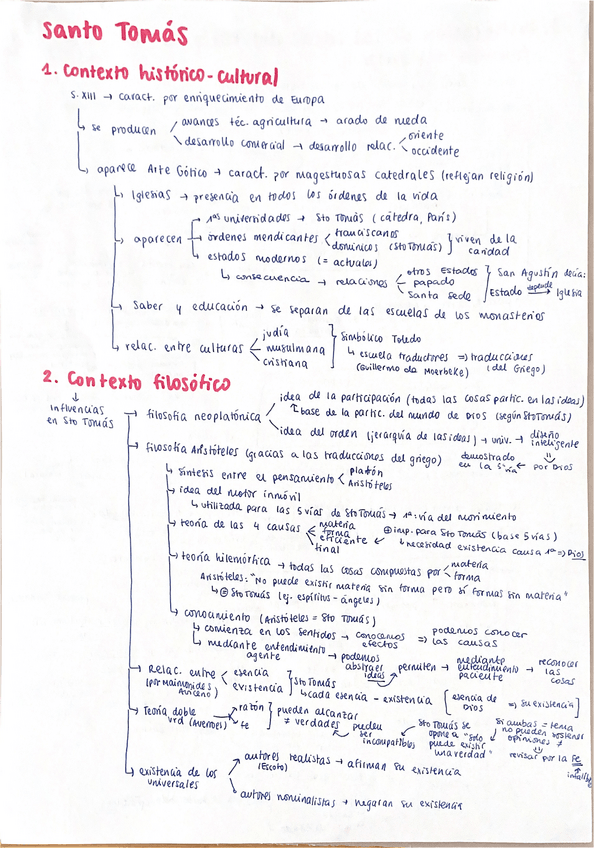 Santo Tomás
1. Contexto histórico-cultural
S. XIII → caract. por enriquecimiento de Europa
↳ se producen
avances téc. agricultura → arado de rueda
desarrollo comercial → desarrollo relac.
oriente
occidente
↳ aparece Arte Gótico → caract. por magestuosas catedrales (reflejan religión)
↳ Iglesias → presencia en todos los órdenes de la vida
aparecen
1as universidades → Sto Tomás (cátedra, París)
órdenes mendicantes
franciscanos
domínicos (Sto Tomás)
viven de la caridad
estados modernos (= actuales)
↳ consecuencia → relaciones
otros Estados
papado
santa sede
San Agustín decía:
Estado depende → Iglesia
↳ Saber y educación → se separan de las escuelas de los monasterios
↳ relac. entre culturas
judía
musulmana
cristiana
Simbólico Toledo
↳ escuela traductores ⇒ traducciones
(Guillermo de Moerbeke) (del Griego)
2. Contexto filosófico
↓
influencias
en Sto Tomás
→ filosofía neoplatónica
idea de la participación (todas las cosas partic. en las ideas)
base de la partic. del mundo de Dios (según Sto Tomás)
idea del orden (jerarquía de las ideas) → univ. → diseño inteligente
⇓
por Dios
demostrado
en la 5ª vía
→ filosofía Aristóteles (gracias a las traducciones del griego)
↳ síntesis entre el pensamiento
platón
Aristóteles
↳ idea del motor inmóvil
↳ utilizada para las 5 vías de Sto Tomás → 1ª: vía del movimiento
→ teoría de las 4 causas
materia
forma
eficiente
final
⊕ imp. para Sto Tomás (base 5 vías)
↳ necesidad existencia causa 1ª ⇒ Dios
→ teoría hilemórfica → todas las cosas compuestas por
materia
forma
Aristóteles: "No puede existir materia sin forma pero sí formas sin materia"
↳ Sto Tomás (ej. espíritus - ángeles)
↳ conocimiento (Aristóteles = Sto Tomás)
↳ comienza en los sentidos → conocemos efectos ⇒ podemos conocer las causas
↳ mediante entendimiento agente → podemos abstraer ideas
permiten → mediante entendimiento paciente → reconocer las cosas
→ Relac. entre
(por Maimonides Avicena)
esencia
existencia
Sto Tomás
↳ cada esencia - existencia [esencia de Dios ⇒ su existencia]
→ Teoría doble vrd (Averroes)
razón
fe
pueden alcanzar
≠ verdades
pueden ser incompatibles
Sto Tomás se opone a "solo puede existir una verdad"
si ambas = tema
no pueden sostener opiniones ≠
⇓
revisar por la Fe
↳ existencia de los universales
autores realistas → afirman su existencia
(Escoto)
autores nominalistas → negaran su existencia